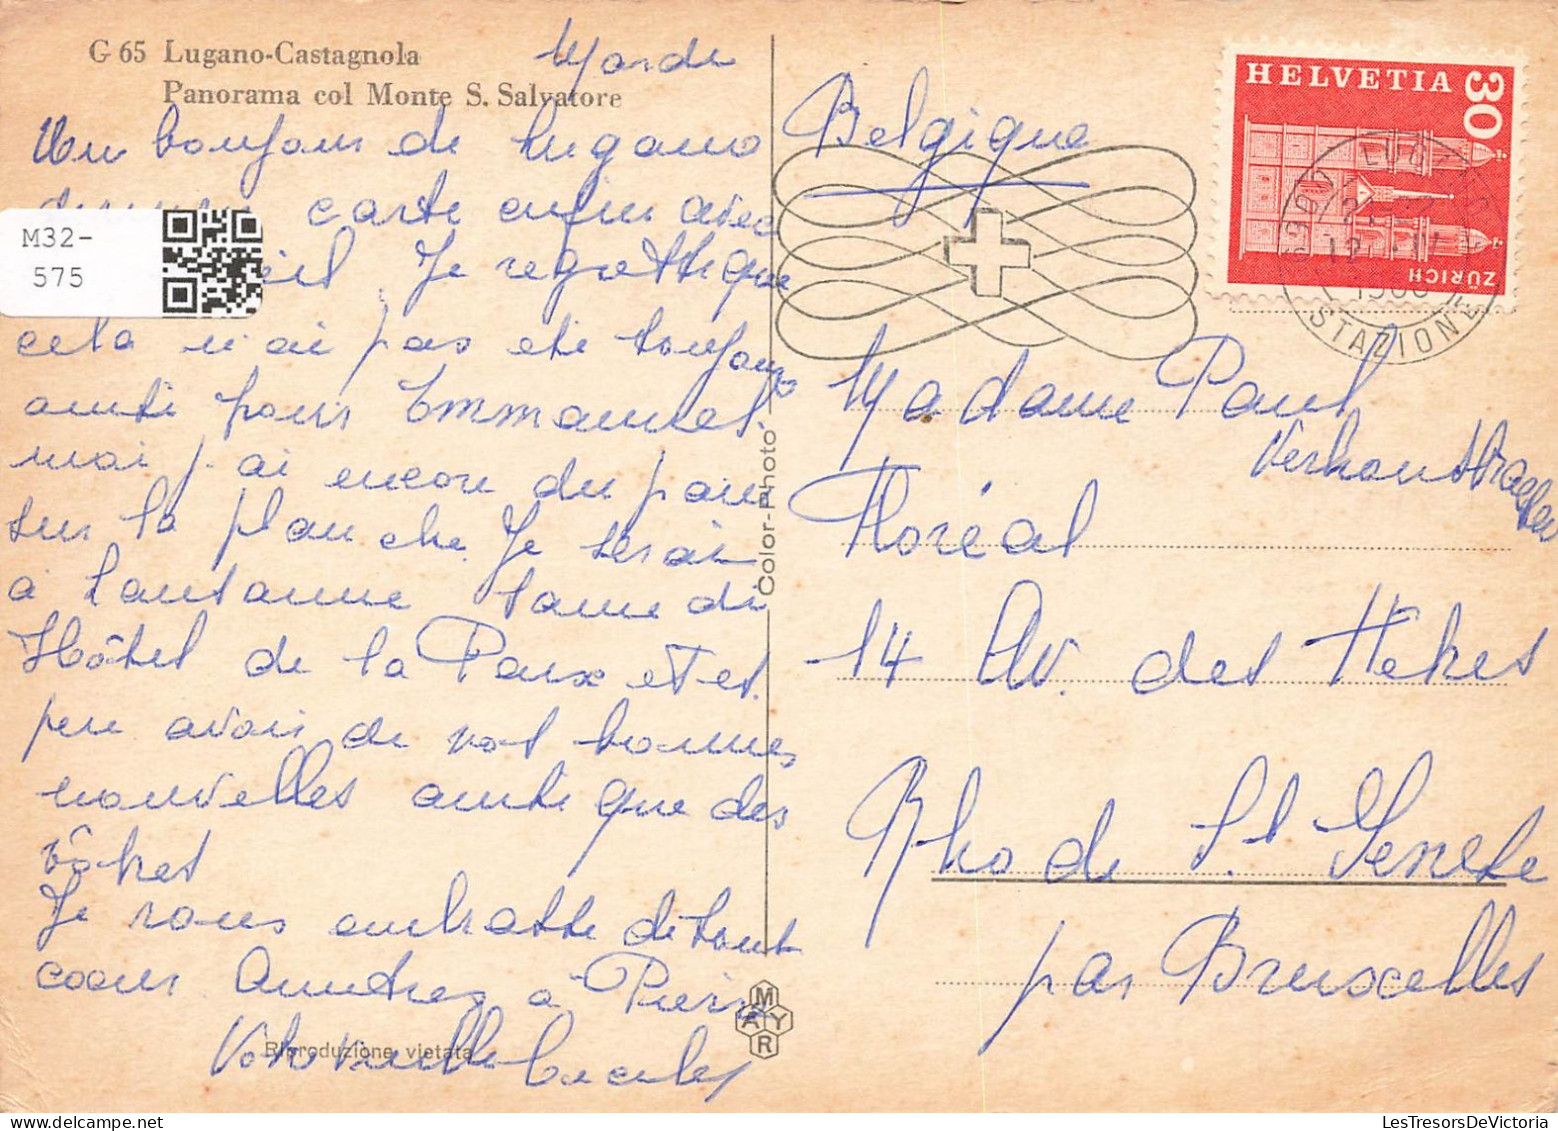 G 65 Lugano-Castagnola
Panorama col Monte S. Salvatore
Mardi
Un bonjour de Lugano
carte enfin avec
Je regrette que
cela n'ai pas été toujours
ainsi pour Emmanuel.
moi j'ai encore du pain
sur la planche. Je serai
à Lausanne samedi
Hôtel de la Paix et
avoir de vos bonnes
nouvelles ainsi que des
vôtres
Je vous embrasse de tout
coeur à Pierre
Votre vieille
Riproduzione vietata
Color-Photo
MAYR
HELVETIA
30
ZÜRICH
6900 LUGANO
STAZIONE
Belgique
Madame Paul
Verhoustraeten
Floréal
14 Av. des Hêtres
Rho de St Genese
par Bruxelles
M32-
575
LesTresorsDeVictoria.com